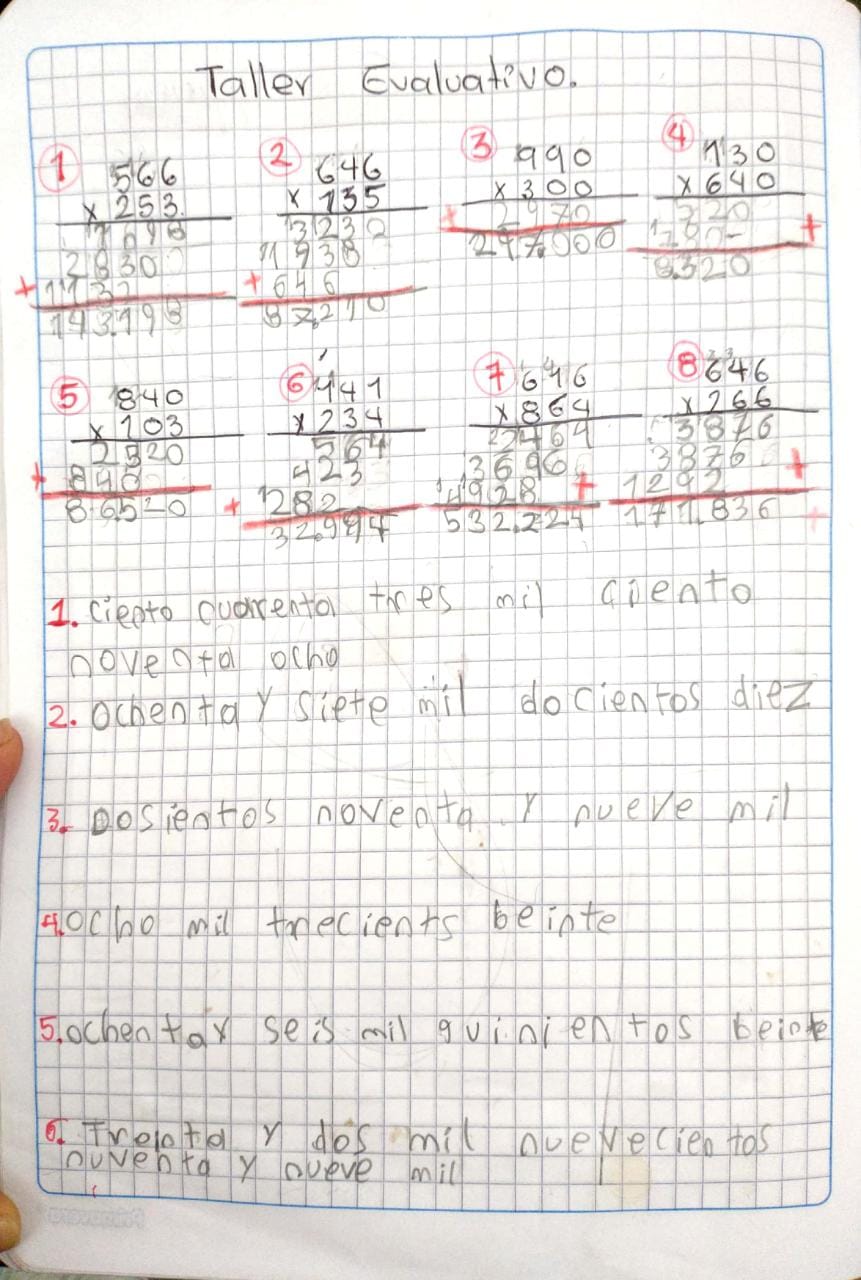 Taller Evaluativo.
1 2 3 4
566 646 990 130
x 253 x 135 x 300 x 640
1698 3230 2970
2830 1938
+ 1132 + 646
143.198 87.210 297.000 8320
5 6 7 8
840 141 646 646
x 103 x 234 x 864 x 266
2520 564 3876
840 423 3876
1292
86520 32.994 532.224 171.836
1. ciento cuarenta tres mil ciento
noventa ocho
2. ochenta y siete mil docientos diez
3. Dosientos noventa y nueve mil
4. ocho mil trecients beinte
5. ochenta y seis mil quinientos beinte
6. Treinta y dos mil nuevecientos
nuventa y nueve mil